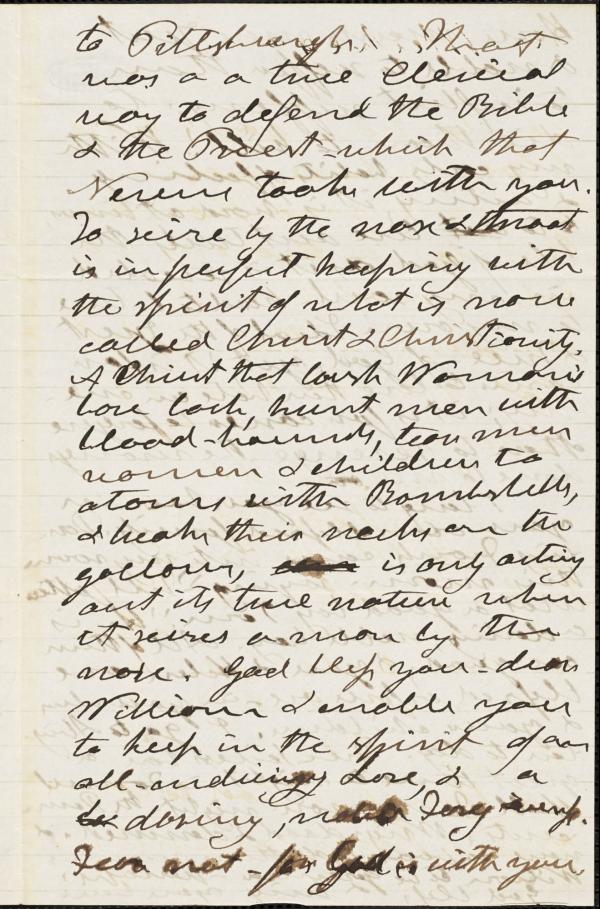 to Pittsburgh. That
was a a true Clerical
way to defend the Bible
& the Priest – which that
took with you.
To seize by the nose & throat
is in perfect keeping with
the spirit of what is now
called Christ & Christianity.
A Christ that Woman's
bare back, hunt men with
blood-hounds, tear men
women & children to
atoms with Bombshells,
& break their necks on the
gallows, is only acting
out its true nature when
it seizes a man by the
nose. God bless you – dear
William & enable you
to keep in the spirit of an
all-enduring Love, & a
daring,
Fear not – for God is with you.